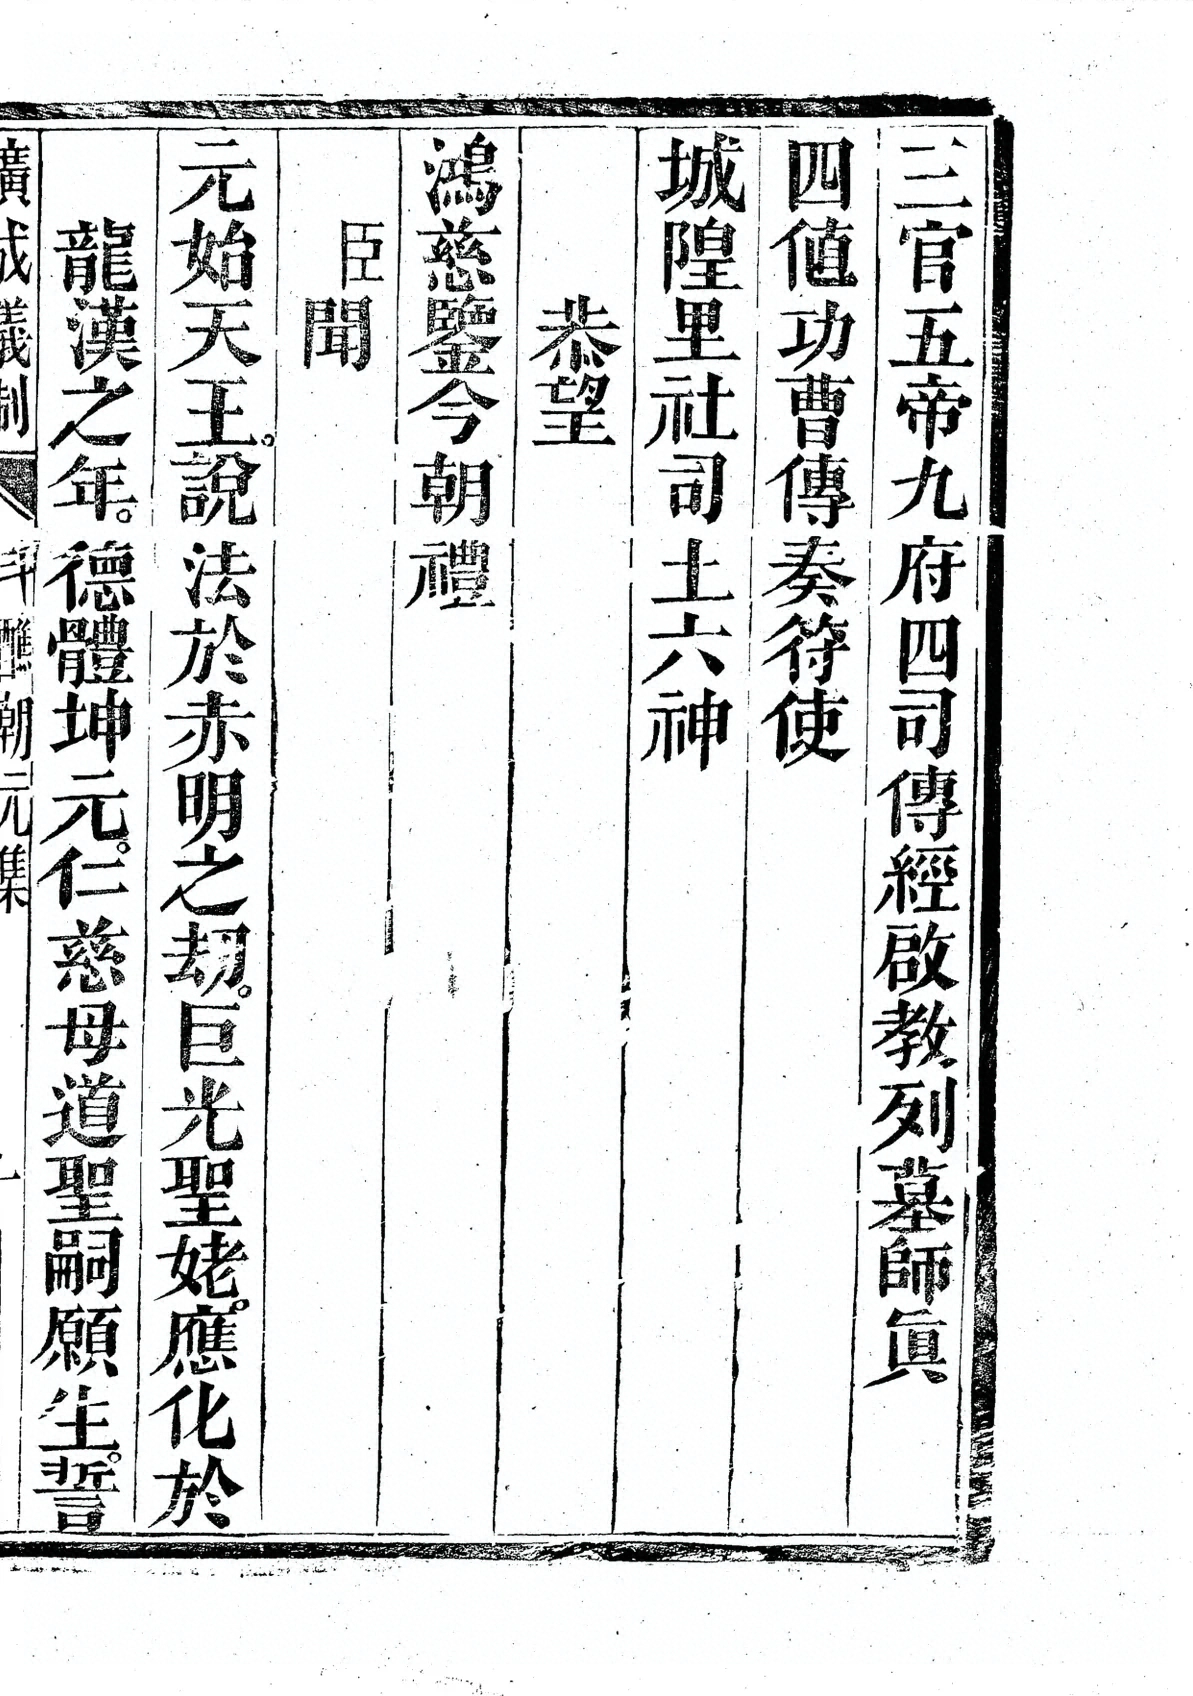 三官五帝九府四司傳經啟教列墓師眞
四値功曹傳奏符使
城隍里社司土六神
恭望
鴻慈鑒今朝禮
臣聞
元始天王。說法於赤明之劫。巨光聖姥。應化於
龍漢之年。德體坤元。仁慈母道聖嗣願生。誓
廣成儀制
斗醮朝元集